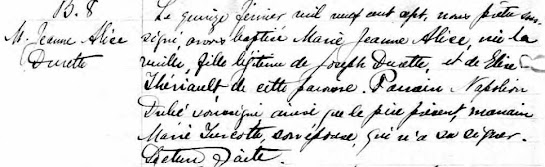 B. 8
M. Jeanne Alice
Durette
Le quinze février mil neuf cent sept, nous prêtre sous-
signé, avons baptisé Marie Jeanne Alice, née la
veille, fille légitime de Joseph Durette, et de Elise
Thériault de cette paroisse. Parrain Napoléon
Dubé soussigné ainsi que le père présent, marraine
Marie Turcotte, son épouse, qui n'a su signer.
Lecture faite.